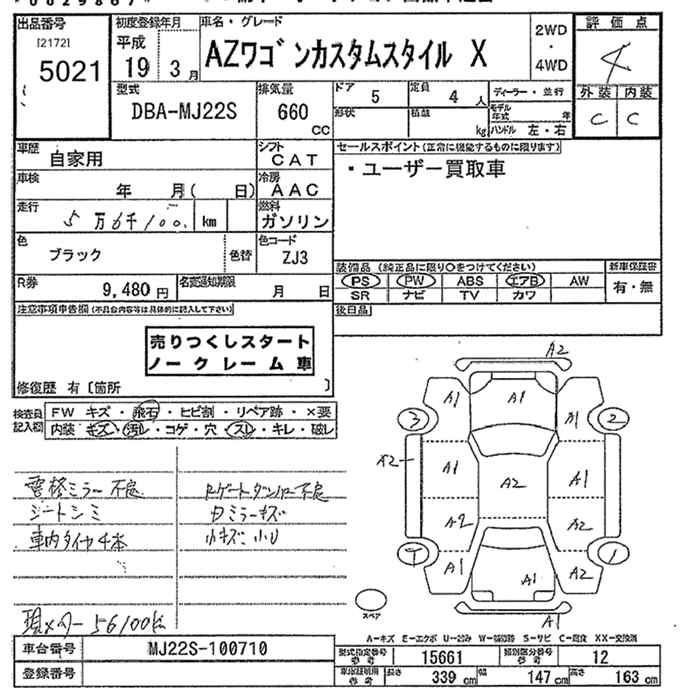 出品番号
[2172]
5021
初度登録年月
平成
19年 3月
車名・グレード
AZワゴンカスタムスタイル X
2WD
・
4WD
評価点
4
外装 内装
C C
型式
DBA-MJ22S
排気量
660 CC
ドア 5
定員 4人
形状
積載 kg
ディーラー・並行
モデル年式 年
ハンドル 左・右
車歴 自家用
シフト CAT
車検 年 月( 日)
冷房 AAC
走行 5万6千100 km
燃料 ガソリン
色 ブラック
色替
色コード ZJ3
R券 9,480円
名変通知期限 月 日
セールスポイント(正常に機能するものに限ります)
・ユーザー買取車
装備品 (純正品に限り○をつけてください)
PS PW ABS エアB AW
SR ナビ TV カワ
新車保証書
有・無
後日品
注意事項申告欄(不具合内容等は具体的に記入して下さい)
売りつくしスタート
ノークレーム車
修復歴 有〔箇所 〕
検査員記入欄
FW キズ・飛石・ヒビ割・リペア跡・×要
内装 キズ・汚レ・コゲ・穴・スレ・キレ・破レ
ミラー不良
シートシミ
車内タイヤ4本
Rゲートダンパー不良
ミラーキズ
小キズ 小U
現メーター 56100km
A2
A1 A1 A1
3 2
A2 A1 A2 A1
A2 A2
A1 A1 A2
1
A1
スペア
A-キズ E-エクボ U-凹み W-補修跡 S-サビ C-腐食 XX-交換済
車台番号 MJ22S-100710
登録番号
型式指定番号参考 15661
類別区分番号参考 12
車検証明用参考 長さ 339 cm 幅 147 cm 高さ 163 cm